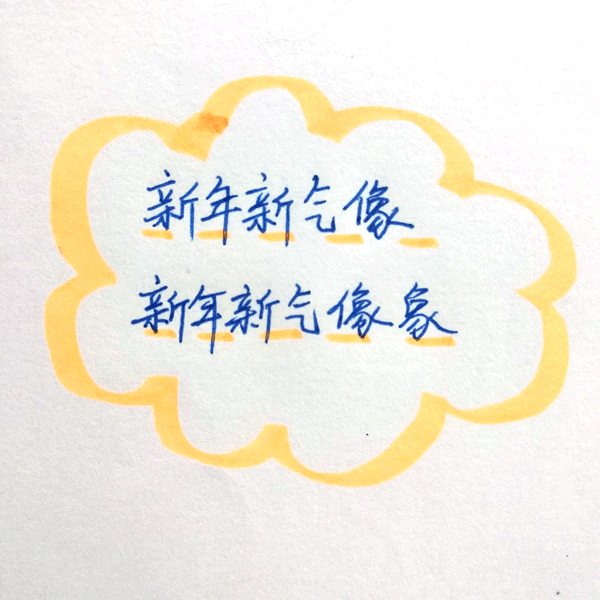 新年新气像
新年新气像象